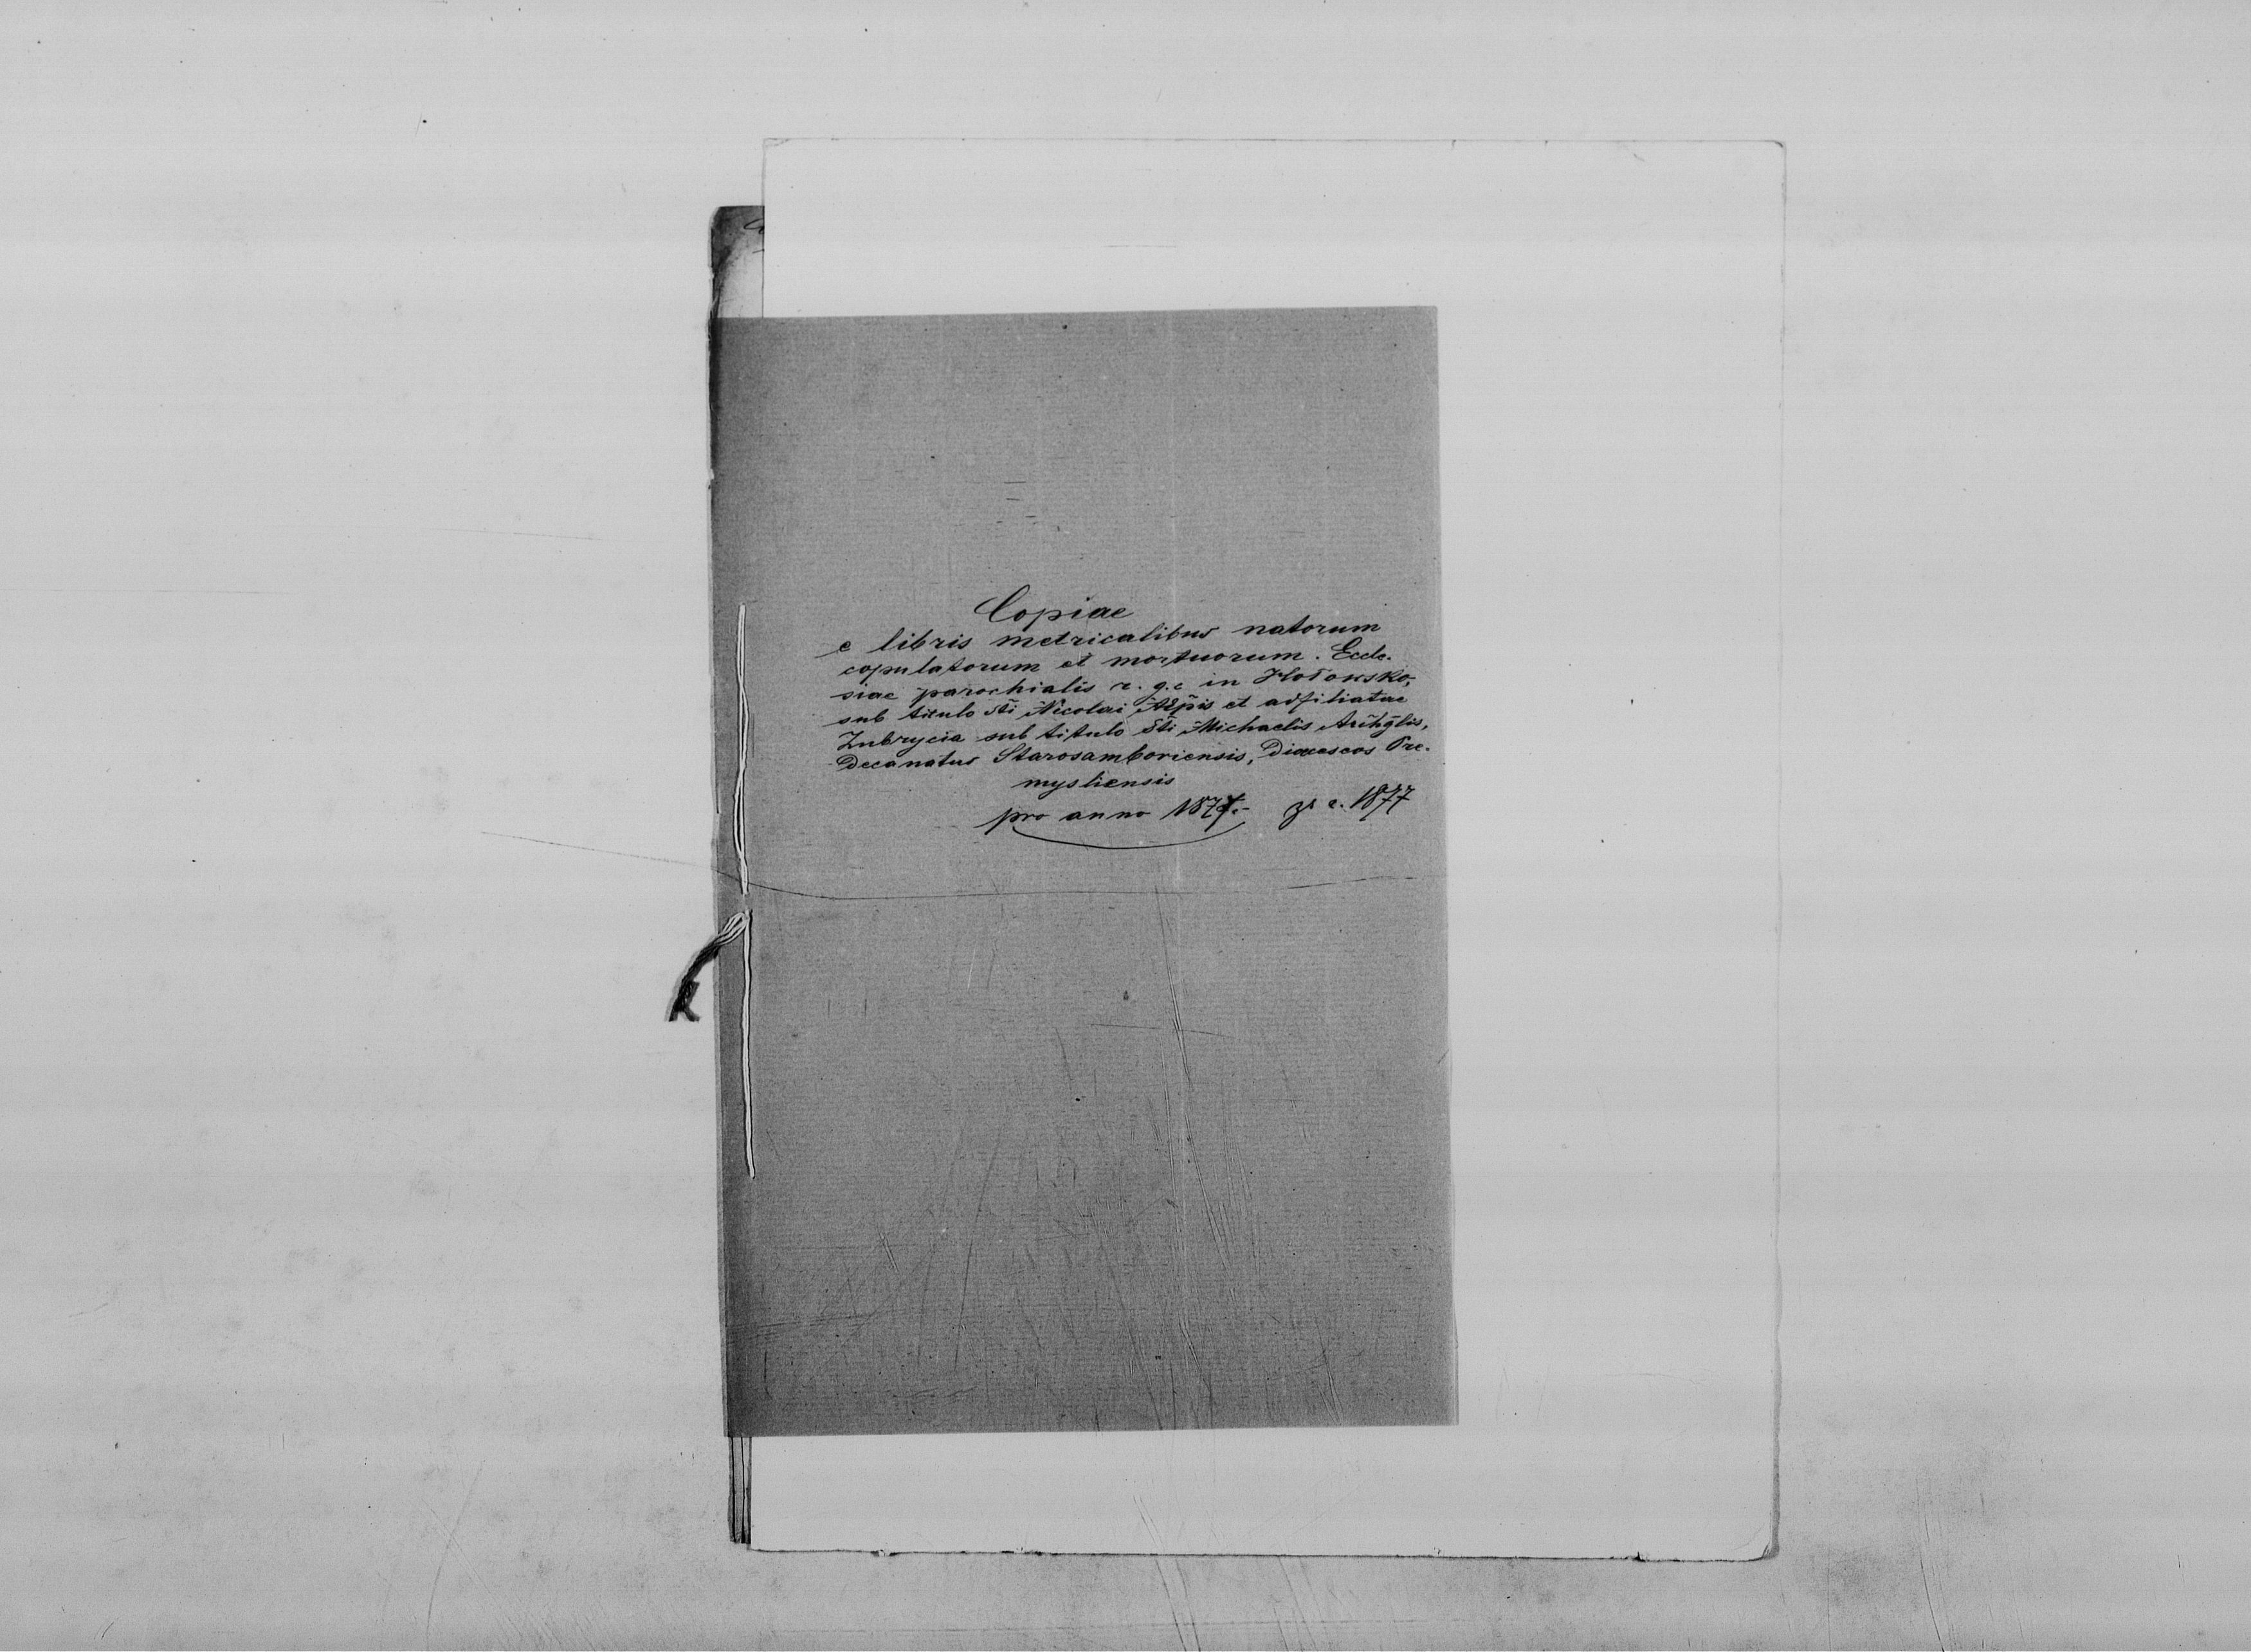 Copiae
e libris metricalibus natorum
copulatorum et mortuorum. Eccle-
siae parochialis r. g. c in Hołowsko,
sub titulo Sti Nicolai AEpis et adfiliatae
Zubrycia sub titulo Sti Michaelis Archglis,
Decanatus Starosamboriensis, Dioeceseos Pre-
mysliensis
pro anno 1877.- 1877